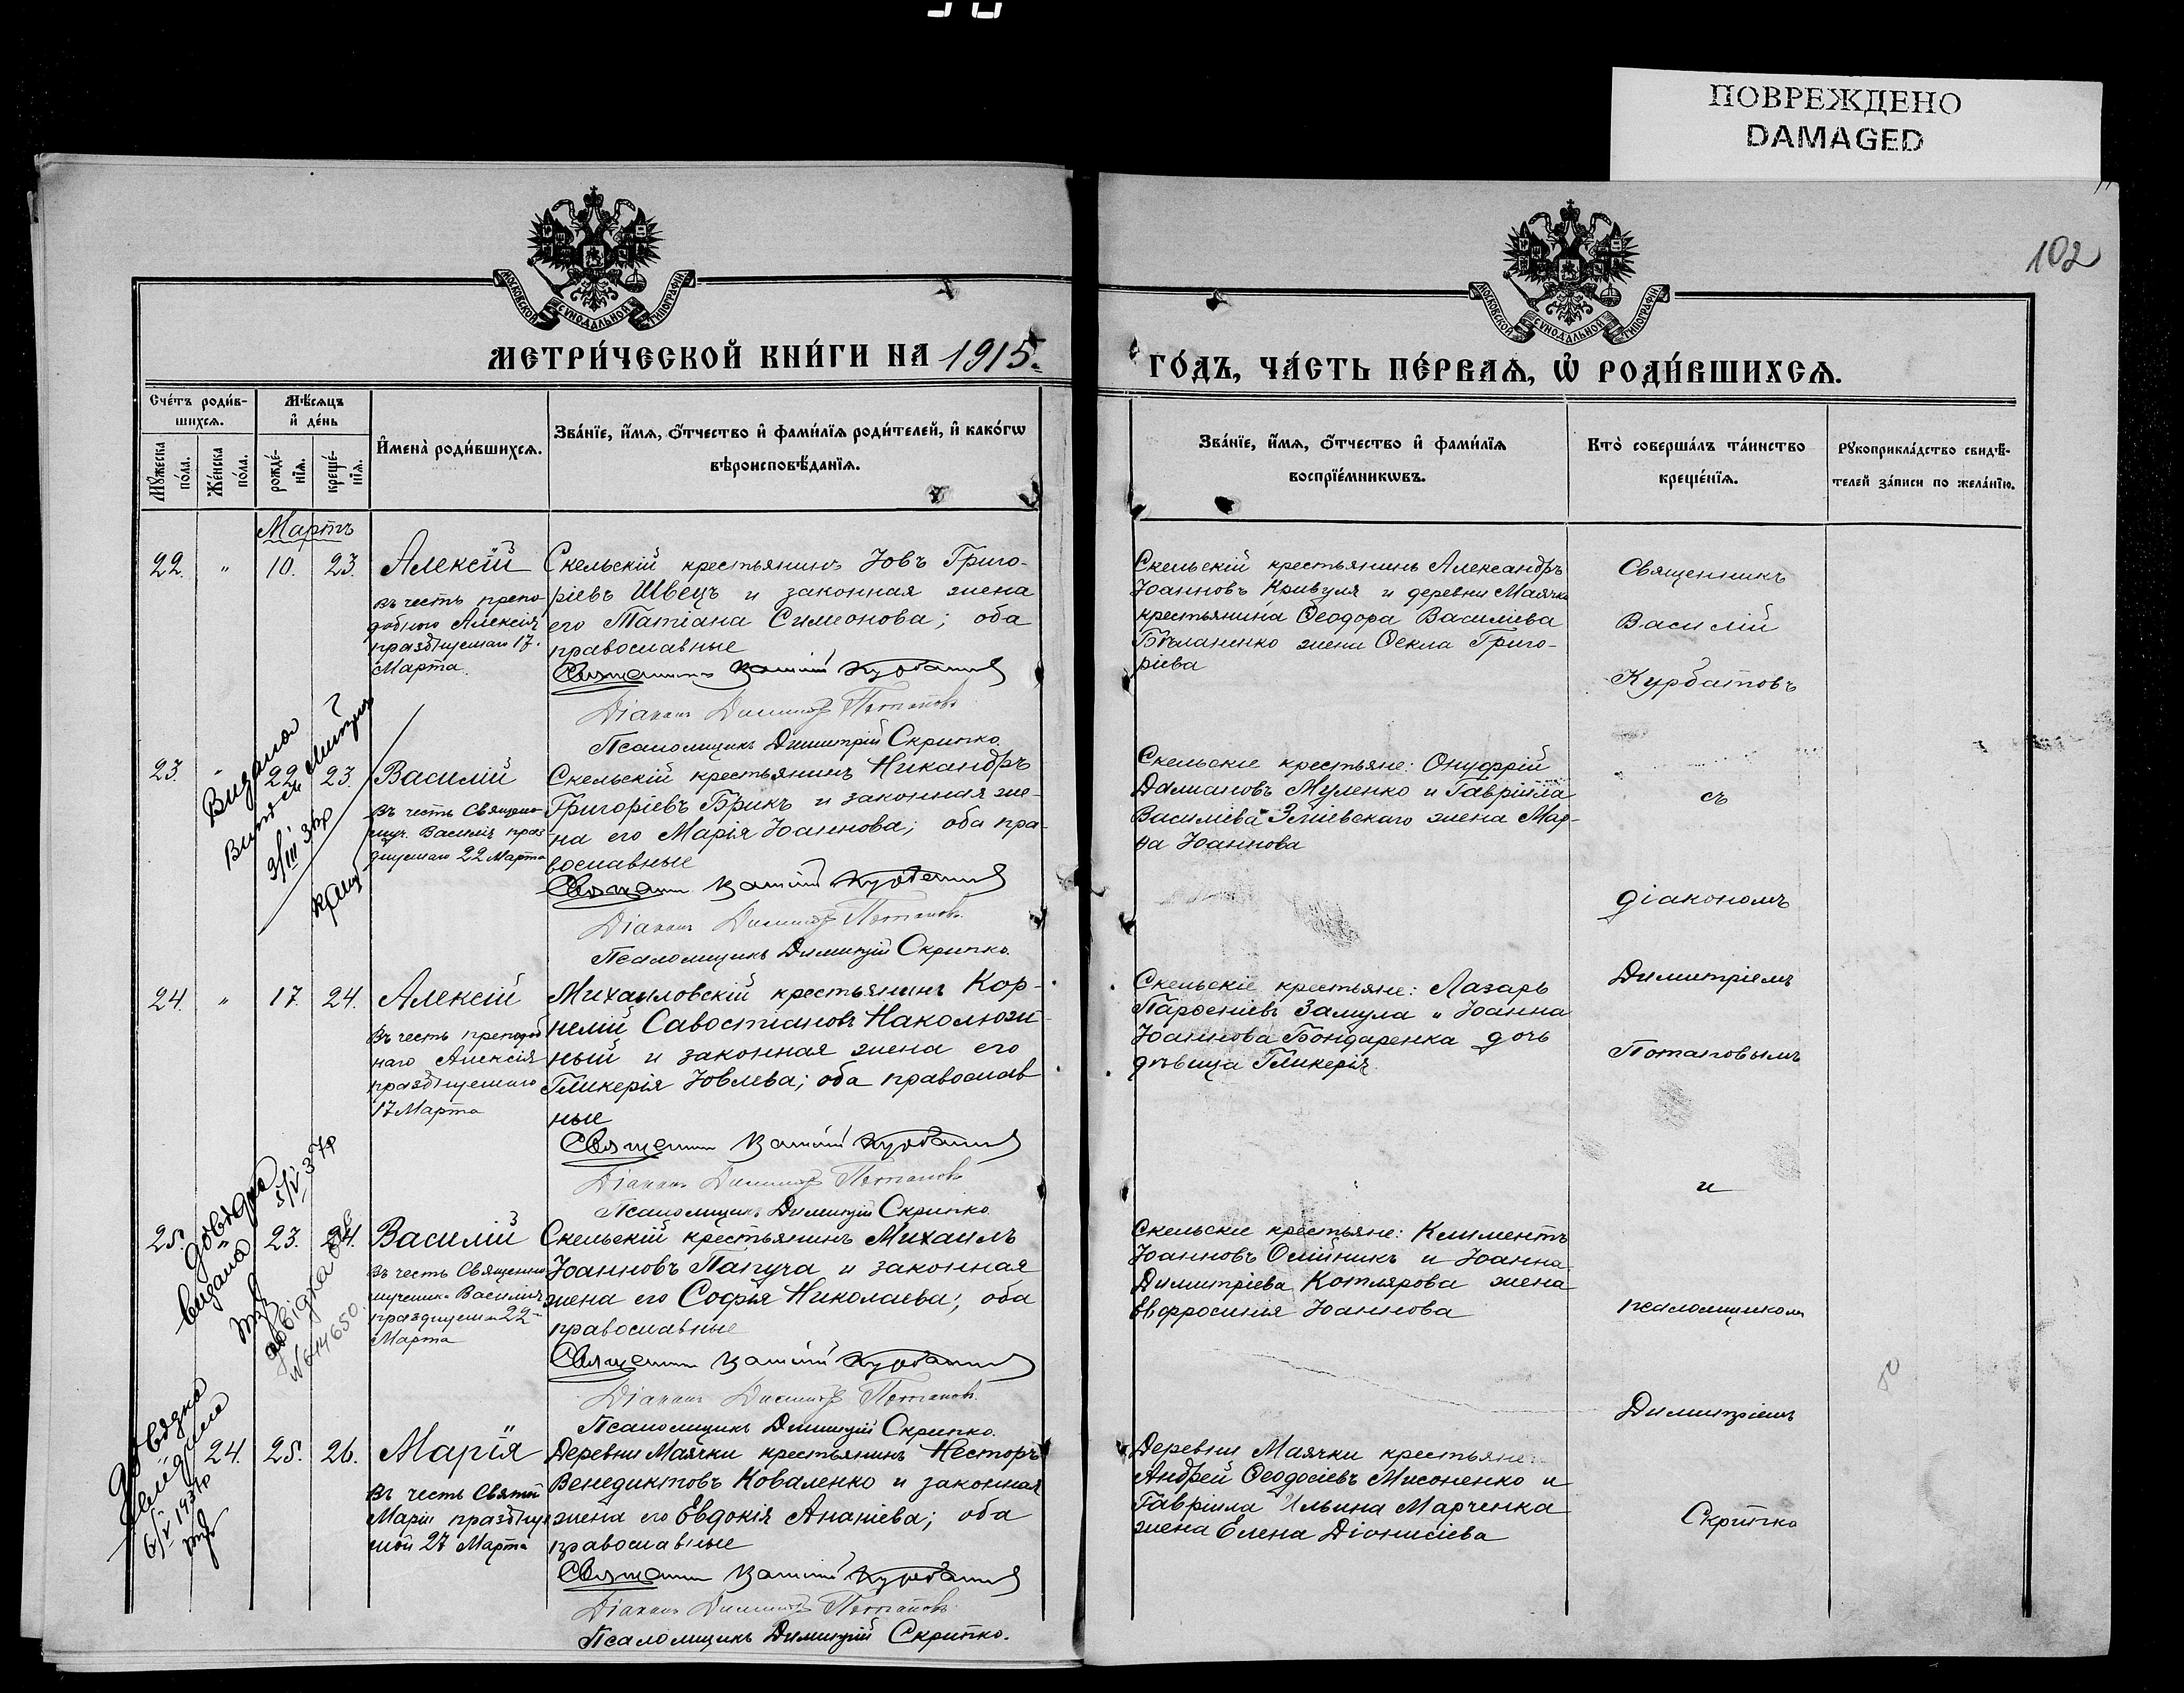 ПОВРЕЖДЕНО
DAMAGED
102
МОСКОВСКОЙ СѴНОДАЛЬНОЙ ТИПОГРАФІИ
МОСКОВСКОЙ СѴНОДАЛЬНОЙ ТИПОГРАФІИ
МЕТРИ́ЧЕСКОЙ КНИ́ГИ НА 1915.
ГО́ДЪ, ЧА́СТЬ ПЕ́РВАѦ, Ѡ҆ РОДИ́ВШИХСѦ.
Сче́тъ роди́в-
шихсѧ.
Мꙋ́жеска
по́ла.
Же́нска
по́ла.
Мѣ́сѧцъ
и҆ де́нь
рожде́-
нїѧ.
креще́-
нїѧ.
И҆мена̀ роди́вшихсѧ.
Зва́нїе, и҆́мѧ, ѻ҆́тчество и҆ фами́лїѧ роди́телей, и҆ како́гѡ
вѣроисповѣ́данїѧ.
Зва́нїе, и҆́мѧ, ѻ҆́тчество и҆ фами́лїѧ
воспрїе́мникѡвъ.
Кто̀ соверша́лъ та́инство
креще́нїѧ.
Рꙋкоприкла́дство свидѣ́-
телей за́писи по жела́нїю.
Мартъ
22. " 10. 23. Алексій
въ честь препо-
добнаго Алексія
празднуемаго 17.
Марта.
Скельскій крестьянинъ Іовъ Григо-
ріевъ Швецъ и законная жена
его Татіана Симеонова; оба
православные
Священникъ Василій Курбатовъ
Діаконъ Димитрій Потаповъ
Псаломщикъ Димитрій Скрипко.
Скельскій крестьянинъ Александръ
Іоанновъ Кривуля и деревни Маячки
крестьянина Ѳеодора Василіева
Бѣланенко жена Ѳекла Григо-
ріева
23. " 22. 23. Василій
Въ честь Священно-
муч. Василія праз-
днуемаго 22 Марта
Скельскій крестьянинъ Никандръ
Григоріевъ Брикъ и законная же-
на его Марія Іоаннова; оба пра-
вославные
Священникъ Василій Курбатовъ
Діаконъ Димитрій Потаповъ
Псаломщикъ Димитрій Скрипко.
Скельскіе крестьяне: Онуфрій
Даміановъ Муленко и Гавріила
Василіева Зміевскаго жена Мар-
ѳа Іоаннова
24. " 17. 24. Алексій
Въ честь преподоб
наго Алексія
празднуемаго
17 Марта
Михайловскій крестьянинъ Кор-
нелій Савостіановъ Наколюж-
ный и законная жена его
Гликерія Іовлева; оба православ
ные
Священникъ Василій Курбатовъ
Діаконъ Димитрій Потаповъ
Псаломщикъ Димитрій Скрипко.
Скельскіе крестьяне: Лазарь
Парѳеніевъ Замула и Іоанна
Іоаннова Бондаренка дочь
дѣвица Гликерія.
25. " 23. 24. Василій
Въ честь Священно-
мученика Василія
празднуемаго 22
Марта
Скельскій крестьянинъ Михаилъ
Іоанновъ Папуча и законная
жена его Софья Николаева; оба
православные
Священникъ Василій Курбатовъ
Діаконъ Димитрій Потаповъ
Псаломщикъ Димитрій Скрипко.
Скельскіе крестьяне: Климентъ
Іоанновъ Олійникъ и Іоанна
Димитріева Котлярова жена
Евфросинія Іоаннова
24. 25. 26. Марія
Въ честь Святой
Маріи празднуе
мой 27 Марта
Деревни Маячки крестьянинъ Несторъ
Венедиктовъ Коваленко и законная
жена его Евдокія Ананіева; оба
православные
Священникъ Василій Курбатовъ
Діаконъ Димитрій Потаповъ
Псаломщикъ Димитрій Скрипко.
Деревни Маячки крестьяне
Андрей Ѳеодосіевъ Мисоненко и
Гавріила Ильина Марченка
жена Елена Діонисіева
Священникъ
Василій
Курбатовъ
съ
діакономъ
Димитріемъ
Потаповымъ
и
псаломщикомъ
Димитріемъ
Скрипко
Довідка
видана
5/V 37р
довідка
№ 644650
Довідка
6/V 1937р